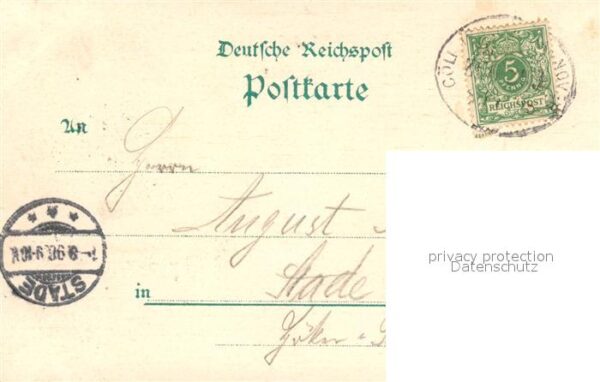 Deutsche Reichspost
Postkarte
CÖLN
5
PFENNIG
REICHSPOST
An
Herrn
August
STADE
in Stade
Höker
privacy protection
Datenschutz